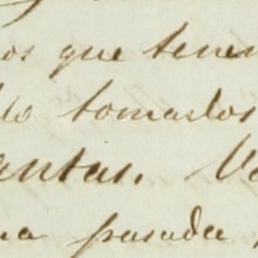 os que tenem
lo tomarlos
antas. V
na pasada